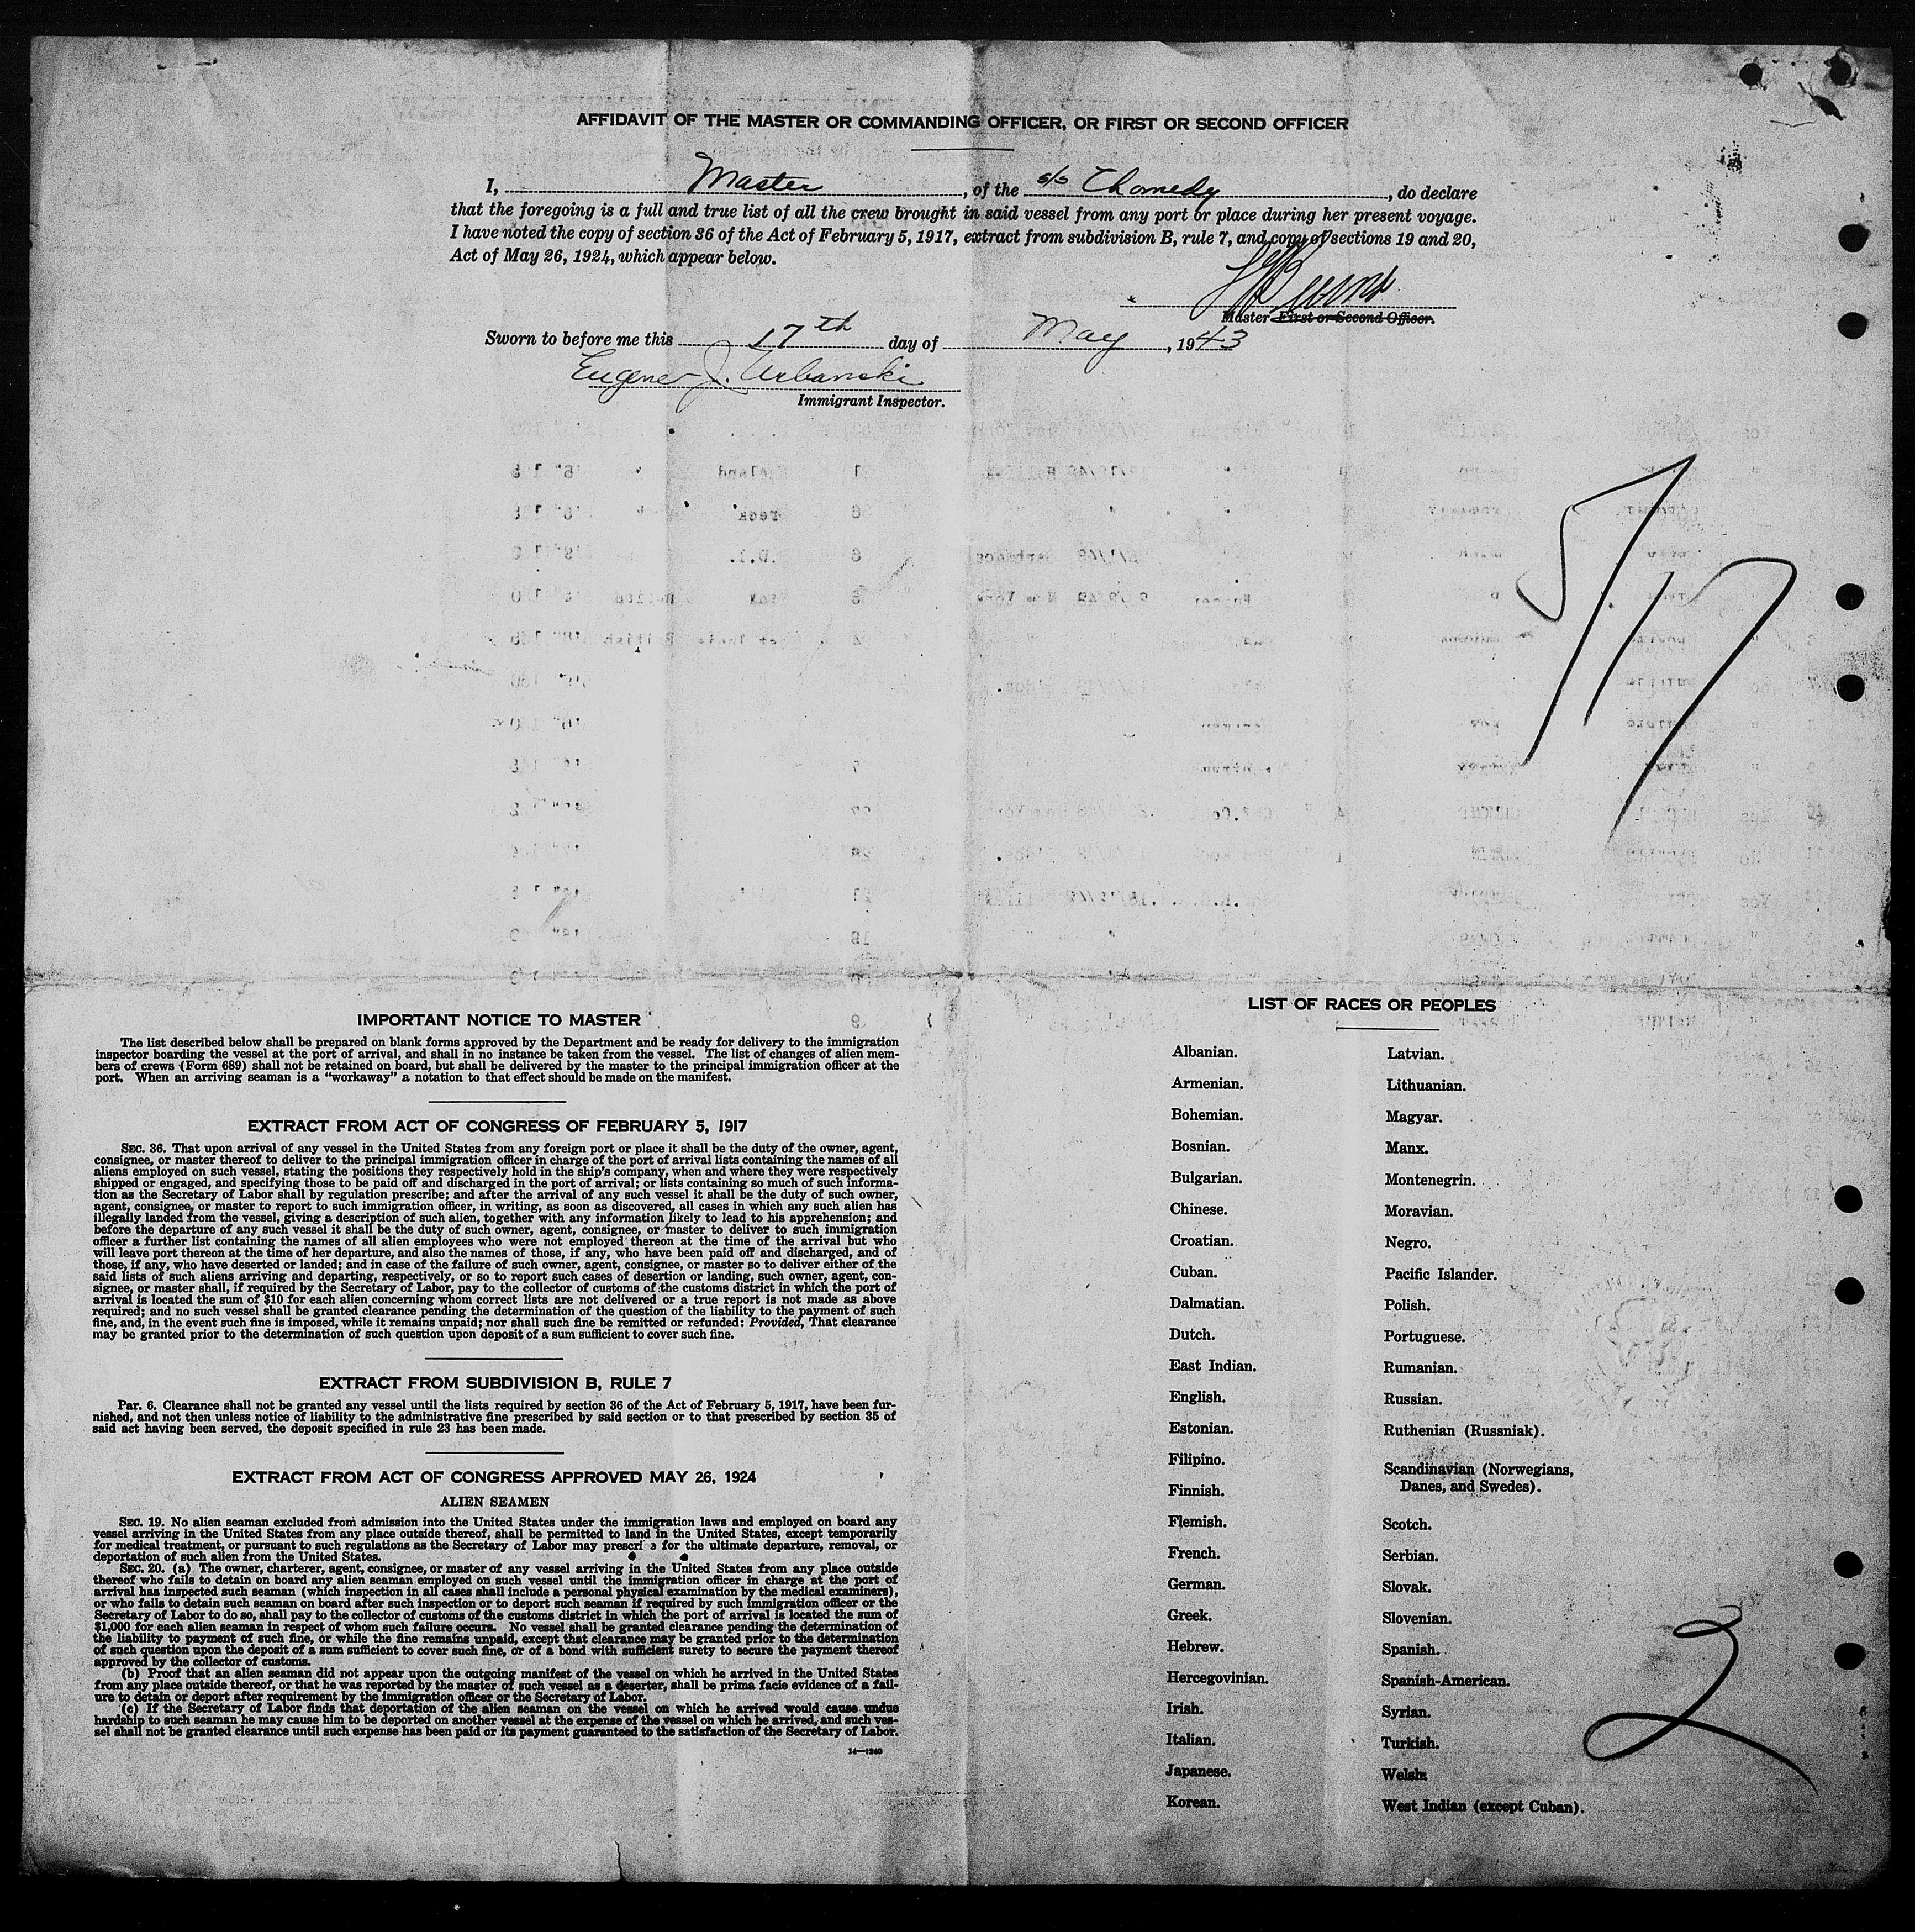 AFFIDAVIT OF THE MASTER OR COMMANDING OFFICER, OR FIRST OR SECOND OFFICER
I, Master, of the s/s Chomedy, do declare
that the foregoing is a full and true list of all the crew brought in said vessel from any port or place during her present voyage.
I have noted the copy of section 36 of the Act of February 5, 1917, extract from subdivision B, rule 7, and copy of sections 19 and 20,
Act of May 26, 1924, which appear below.
Master First or Second Officer.
Sworn to before me this 17th day of May, 1943
Eugene J. Urbanski
Immigrant Inspector.
5/17
IMPORTANT NOTICE TO MASTER
The list described below shall be prepared on blank forms approved by the Department and be ready for delivery to the immigration
inspector boarding the vessel at the port of arrival, and shall in no instance be taken from the vessel. The list of changes of alien mem-
bers of crews (Form 689) shall not be retained on board, but shall be delivered by the master to the principal immigration officer at the
port. When an arriving seaman is a "workaway" a notation to that effect should be made on the manifest.
EXTRACT FROM ACT OF CONGRESS OF FEBRUARY 5, 1917
SEC. 36. That upon arrival of any vessel in the United States from any foreign port or place it shall be the duty of the owner, agent,
consignee, or master thereof to deliver to the principal immigration officer in charge of the port of arrival lists containing the names of all
aliens employed on such vessel, stating the positions they respectively hold in the ship's company, when and where they were respectively
shipped or engaged, and specifying those to be paid off and discharged in the port of arrival; or lists containing so much of such informa-
tion as the Secretary of Labor shall by regulation prescribe; and after the arrival of any such vessel it shall be the duty of such owner,
agent, consignee, or master to report to such immigration officer, in writing, as soon as discovered, all cases in which any such alien has
illegally landed from the vessel, giving a description of such alien, together with any information likely to lead to his apprehension; and
before the departure of any such vessel it shall be the duty of such owner, agent, consignee, or master to deliver to such immigration
officer a further list containing the names of all alien employees who were not employed thereon at the time of the arrival but who
will leave port thereon at the time of her departure, and also the names of those, if any, who have been paid off and discharged, and of
those, if any, who have deserted or landed; and in case of the failure of such owner, agent, consignee, or master so to deliver either of the
said lists of such aliens arriving and departing, respectively, or so to report such cases of desertion or landing, such owner, agent, con-
signee, or master shall, if required by the Secretary of Labor, pay to the collector of customs of the customs district in which the port of
arrival is located the sum of $10 for each alien concerning whom correct lists are not delivered or a true report is not made as above
required; and no such vessel shall be granted clearance pending the determination of the question of the liability to the payment of such
fine, and, in the event such fine is imposed, while it remains unpaid; nor shall such fine be remitted or refunded: Provided, That clearance
may be granted prior to the determination of such question upon deposit of a sum sufficient to cover such fine.
EXTRACT FROM SUBDIVISION B, RULE 7
Par. 6. Clearance shall not be granted any vessel until the lists required by section 36 of the Act of February 5, 1917, have been fur-
nished, and not then unless notice of liability to the administrative fine prescribed by said section or to that prescribed by section 35 of
said act having been served, the deposit specified in rule 23 has been made.
EXTRACT FROM ACT OF CONGRESS APPROVED MAY 26, 1924
ALIEN SEAMEN
SEC. 19. No alien seaman excluded from admission into the United States under the immigration laws and employed on board any
vessel arriving in the United States from any place outside thereof, shall be permitted to land in the United States, except temporarily
for medical treatment, or pursuant to such regulations as the Secretary of Labor may prescribe for the ultimate departure, removal, or
deportation of such alien from the United States.
SEC. 20. (a) The owner, charterer, agent, consignee, or master of any vessel arriving in the United States from any place outside
thereof who fails to detain on board any alien seaman employed on such vessel until the immigration officer in charge at the port of
arrival has inspected such seaman (which inspection in all cases shall include a personal physical examination by the medical examiners),
or who fails to detain such seaman on board after such inspection or to deport such seaman if required by such immigration officer or the
Secretary of Labor to do so, shall pay to the collector of customs of the customs district in which the port of arrival is located the sum of
$1,000 for each alien seaman in respect of whom such failure occurs. No vessel shall be granted clearance pending the determination of
the liability to payment of such fine, or while the fine remains unpaid, except that clearance may be granted prior to the determination
of such question upon the deposit of a sum sufficient to cover such fine, or of a bond with sufficient surety to secure the payment thereof
approved by the collector of customs.
(b) Proof that an alien seaman did not appear upon the outgoing manifest of the vessel on which he arrived in the United States
from any place outside thereof, or that he was reported by the master of such vessel as a deserter, shall be prima facie evidence of a fail-
ure to detain or deport after requirement by the immigration officer or the Secretary of Labor.
(c) If the Secretary of Labor finds that deportation of the alien seaman on the vessel on which he arrived would cause undue
hardship to such seaman he may cause him to be deported on another vessel at the expense of the vessel on which he arrived, and such ves-
sel shall not be granted clearance until such expense has been paid or its payment guaranteed to the satisfaction of the Secretary of Labor.
14—1240
LIST OF RACES OR PEOPLES
Albanian.
Armenian.
Bohemian.
Bosnian.
Bulgarian.
Chinese.
Croatian.
Cuban.
Dalmatian.
Dutch.
East Indian.
English.
Estonian.
Filipino.
Finnish.
Flemish.
French.
German.
Greek.
Hebrew.
Hercegovinian.
Irish.
Italian.
Japanese.
Korean.
Latvian.
Lithuanian.
Magyar.
Manx.
Montenegrin.
Moravian.
Negro.
Pacific Islander.
Polish.
Portuguese.
Rumanian.
Russian.
Ruthenian (Russniak).
Scandinavian (Norwegians,
Danes, and Swedes).
Scotch.
Serbian.
Slovak.
Slovenian.
Spanish.
Spanish-American.
Syrian.
Turkish.
Welsh.
West Indian (except Cuban).
2